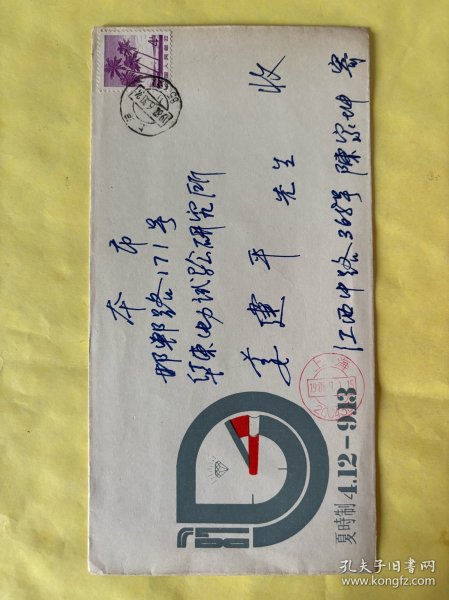 本市
邯郸路171号
华东电力试验研究所
姜建平 先生 收
江西中路368号 陳宗坤 寄
上海
夏時制 4.12-9.13
孔夫子旧书网
www.kongfz.com